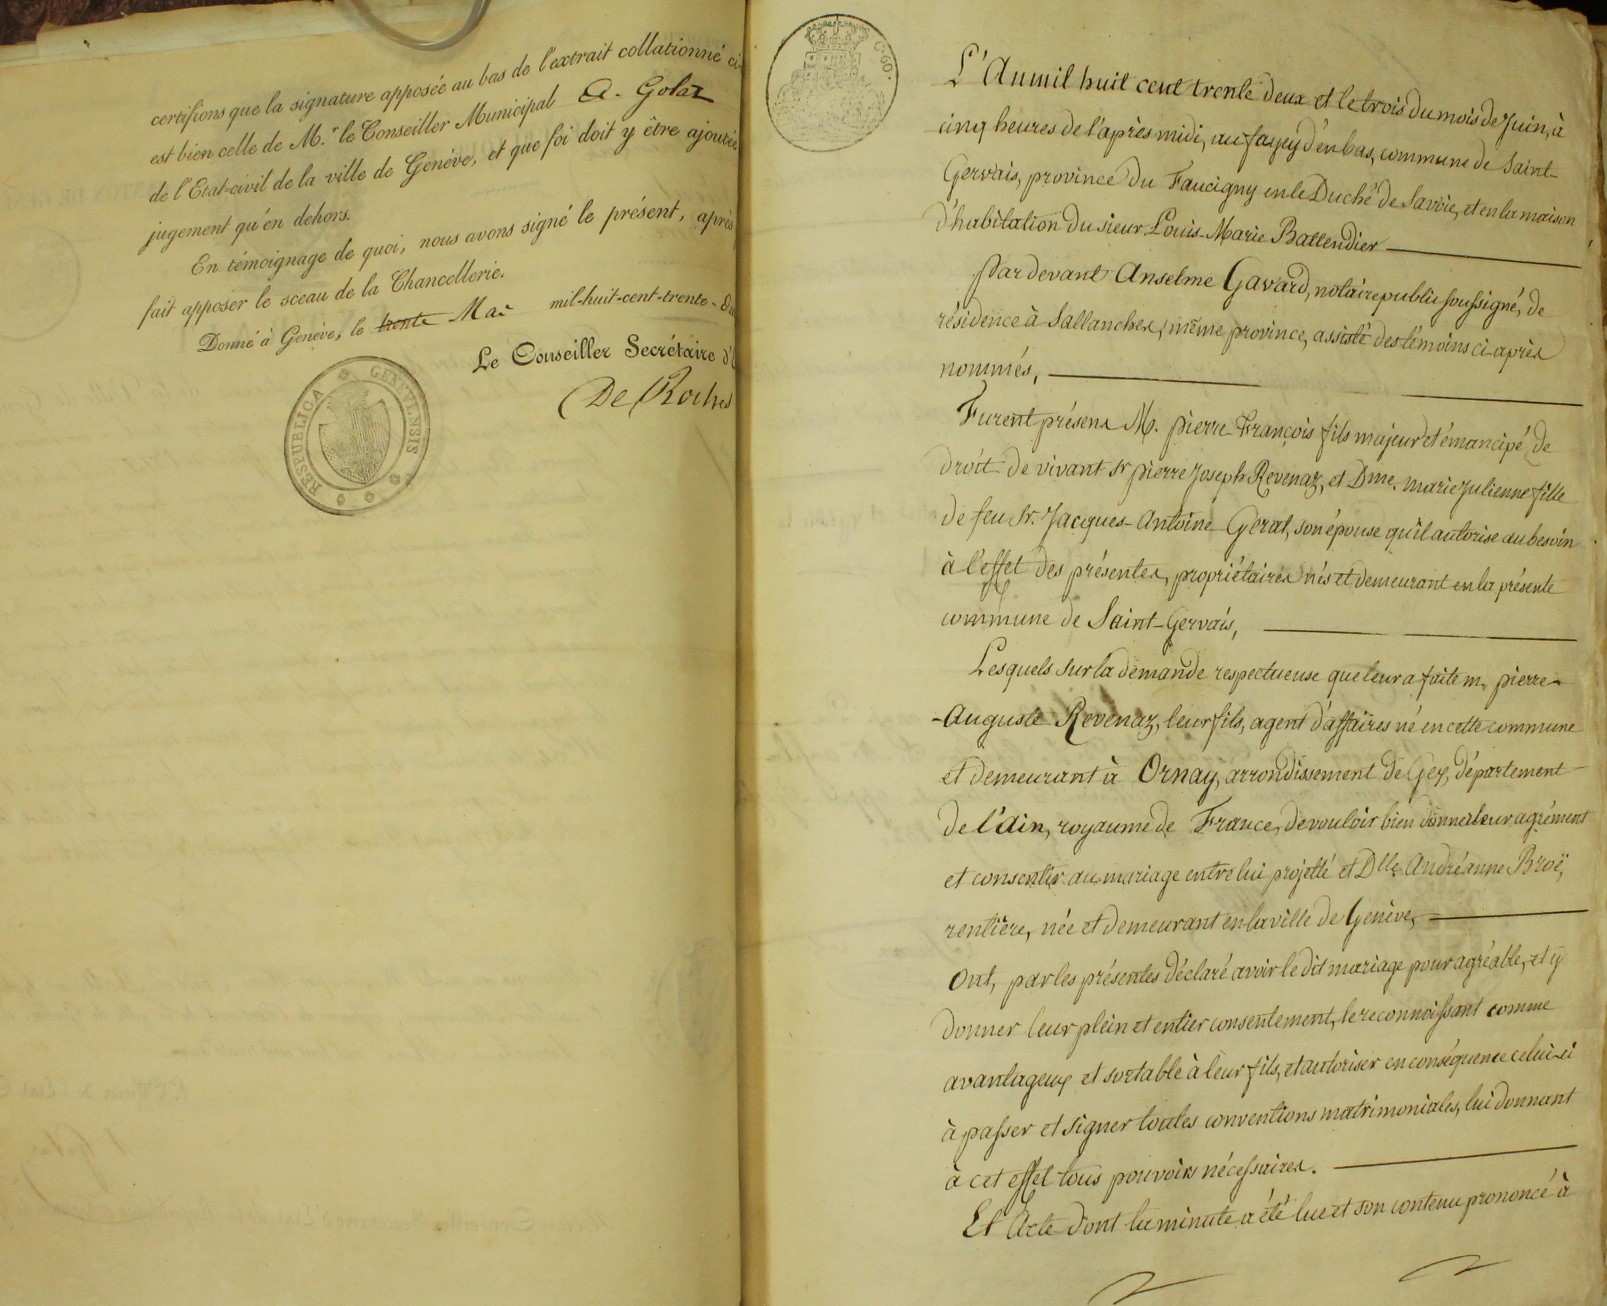 certifions que la signature apposée au bas de l'extrait collationné ci
est bien celle de M.r le Conseiller Municipal A. Golaz
de l'Etat-civil de la ville de Genève, et que foi doit y être ajoutée
jugement qu'en dehors.
En témoignage de quoi, nous avons signé le présent, après
fait apposer le sceau de la Chancellerie.
Donné à Genève, le trente Mai mil-huit-cent-trente-du
Le Conseiller Secrétaire d'E
De Roches
RESPUBLICA GENEVENSIS
C. 60.
L'An mil huit cent trente deux et le trois du mois de Juin, à
cinq heures de l'après midi, au fayey d'en bas, commune de Saint-
Gervais, province du Faucigny en le Duché de Savoie, et en la maison
d'habitation du sieur Louis-Marie Battendier
Par devant Anselme Gavard, notaire public soussigné, de
résidence à Sallanches, même province, assisté des témoins ci-après
nommés,
Furent présens M. pierre François fils majeur et émancipé de
droit de vivant Sr pierre Joseph Revenaz, et Dme. marie Julienne fille
de feu Sr. Jacques-Antoine Gerat, son épouse qu'il autorise au besoin
à l'effet des présentes, propriétaires nés et demeurant en la présente
commune de Saint-Gervais,
Lesquels sur la demande respectueuse que leur a faite m. pierre-
-Auguste Revenaz, leur fils, agent d'affaires né en cette commune
et demeurant à Ornay, arrondissement de Gex, département
de l'Ain, royaume de France, de vouloir bien donner leur agrément
et consentir au mariage entre lui projetté et Dlle Andréanne Broë,
rentière, née et demeurant en la ville de Genève,
Ont, par les présentes déclaré avoir le dit mariage pour agréable, et y
donner leur plein et entier consentement, le reconnoissant comme
avantageux et sortable à leur fils, et autoriser en conséquence celui-ci
à passer et signer toutes conventions matrimoniales, lui donnant
à cet effet tous pouvoirs nécessaires.
Et Acte dont la minute a été lue et son contenu prononcé à